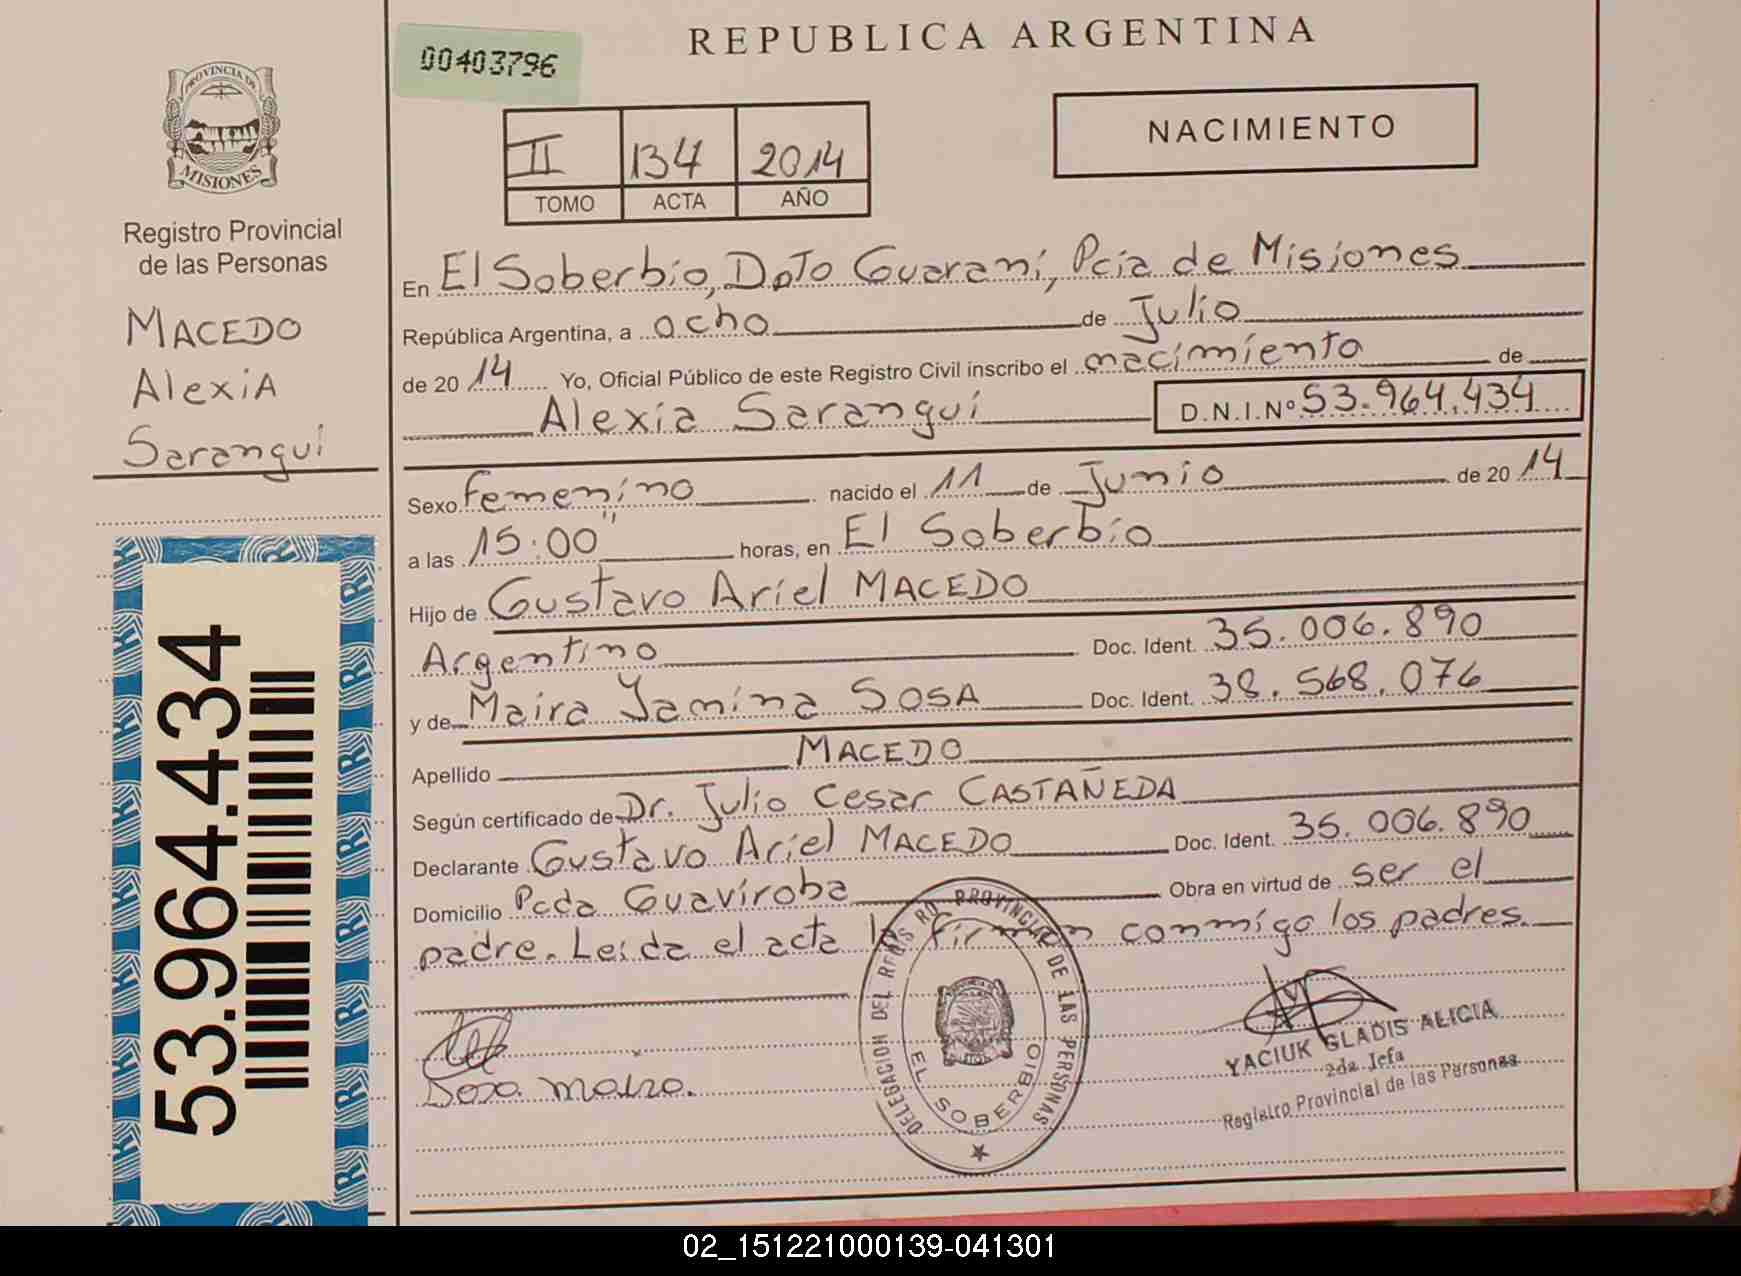 REPUBLICA ARGENTINA
00403796
NACIMIENTO
II 134 2014
TOMO ACTA AÑO
PROVINCIA DE
MISIONES
Registro Provincial
de las Personas
MACEDO
AlexiA
Sarangui
53.964.434
En El Soberbio, Dpto Guaraní, Pcia de Misiones
República Argentina, a ocho de Julio
de 20 14 Yo, Oficial Público de este Registro Civil inscribo el nacimiento de
Alexia Sarangui D.N.I.Nº 53.964.434
Sexo femenino nacido el 11 de Junio de 20 14
a las 15:00" horas, en El Soberbio
Hijo de Gustavo Ariel MACEDO
Argentino Doc. Ident. 35.006.890
y de Maira Yamina SOSA Doc. Ident. 38.568.076
Apellido MACEDO
Según certificado de Dr. Julio Cesar CASTAÑEDA
Declarante Gustavo Ariel MACEDO Doc. Ident. 35.006.890
Domicilio Pcda Guaviroba Obra en virtud de ser el
padre. Leida el acta la firman conmigo los padres.
DELEGACION DEL REGIS RO PROVINCIAL DE LAS PERSONAS
EL SOBERBIO
YACIUK GLADIS ALICIA
2da Jefa
Registro Provincial de las Personas
Sosa maira.
02_151221000139-041301